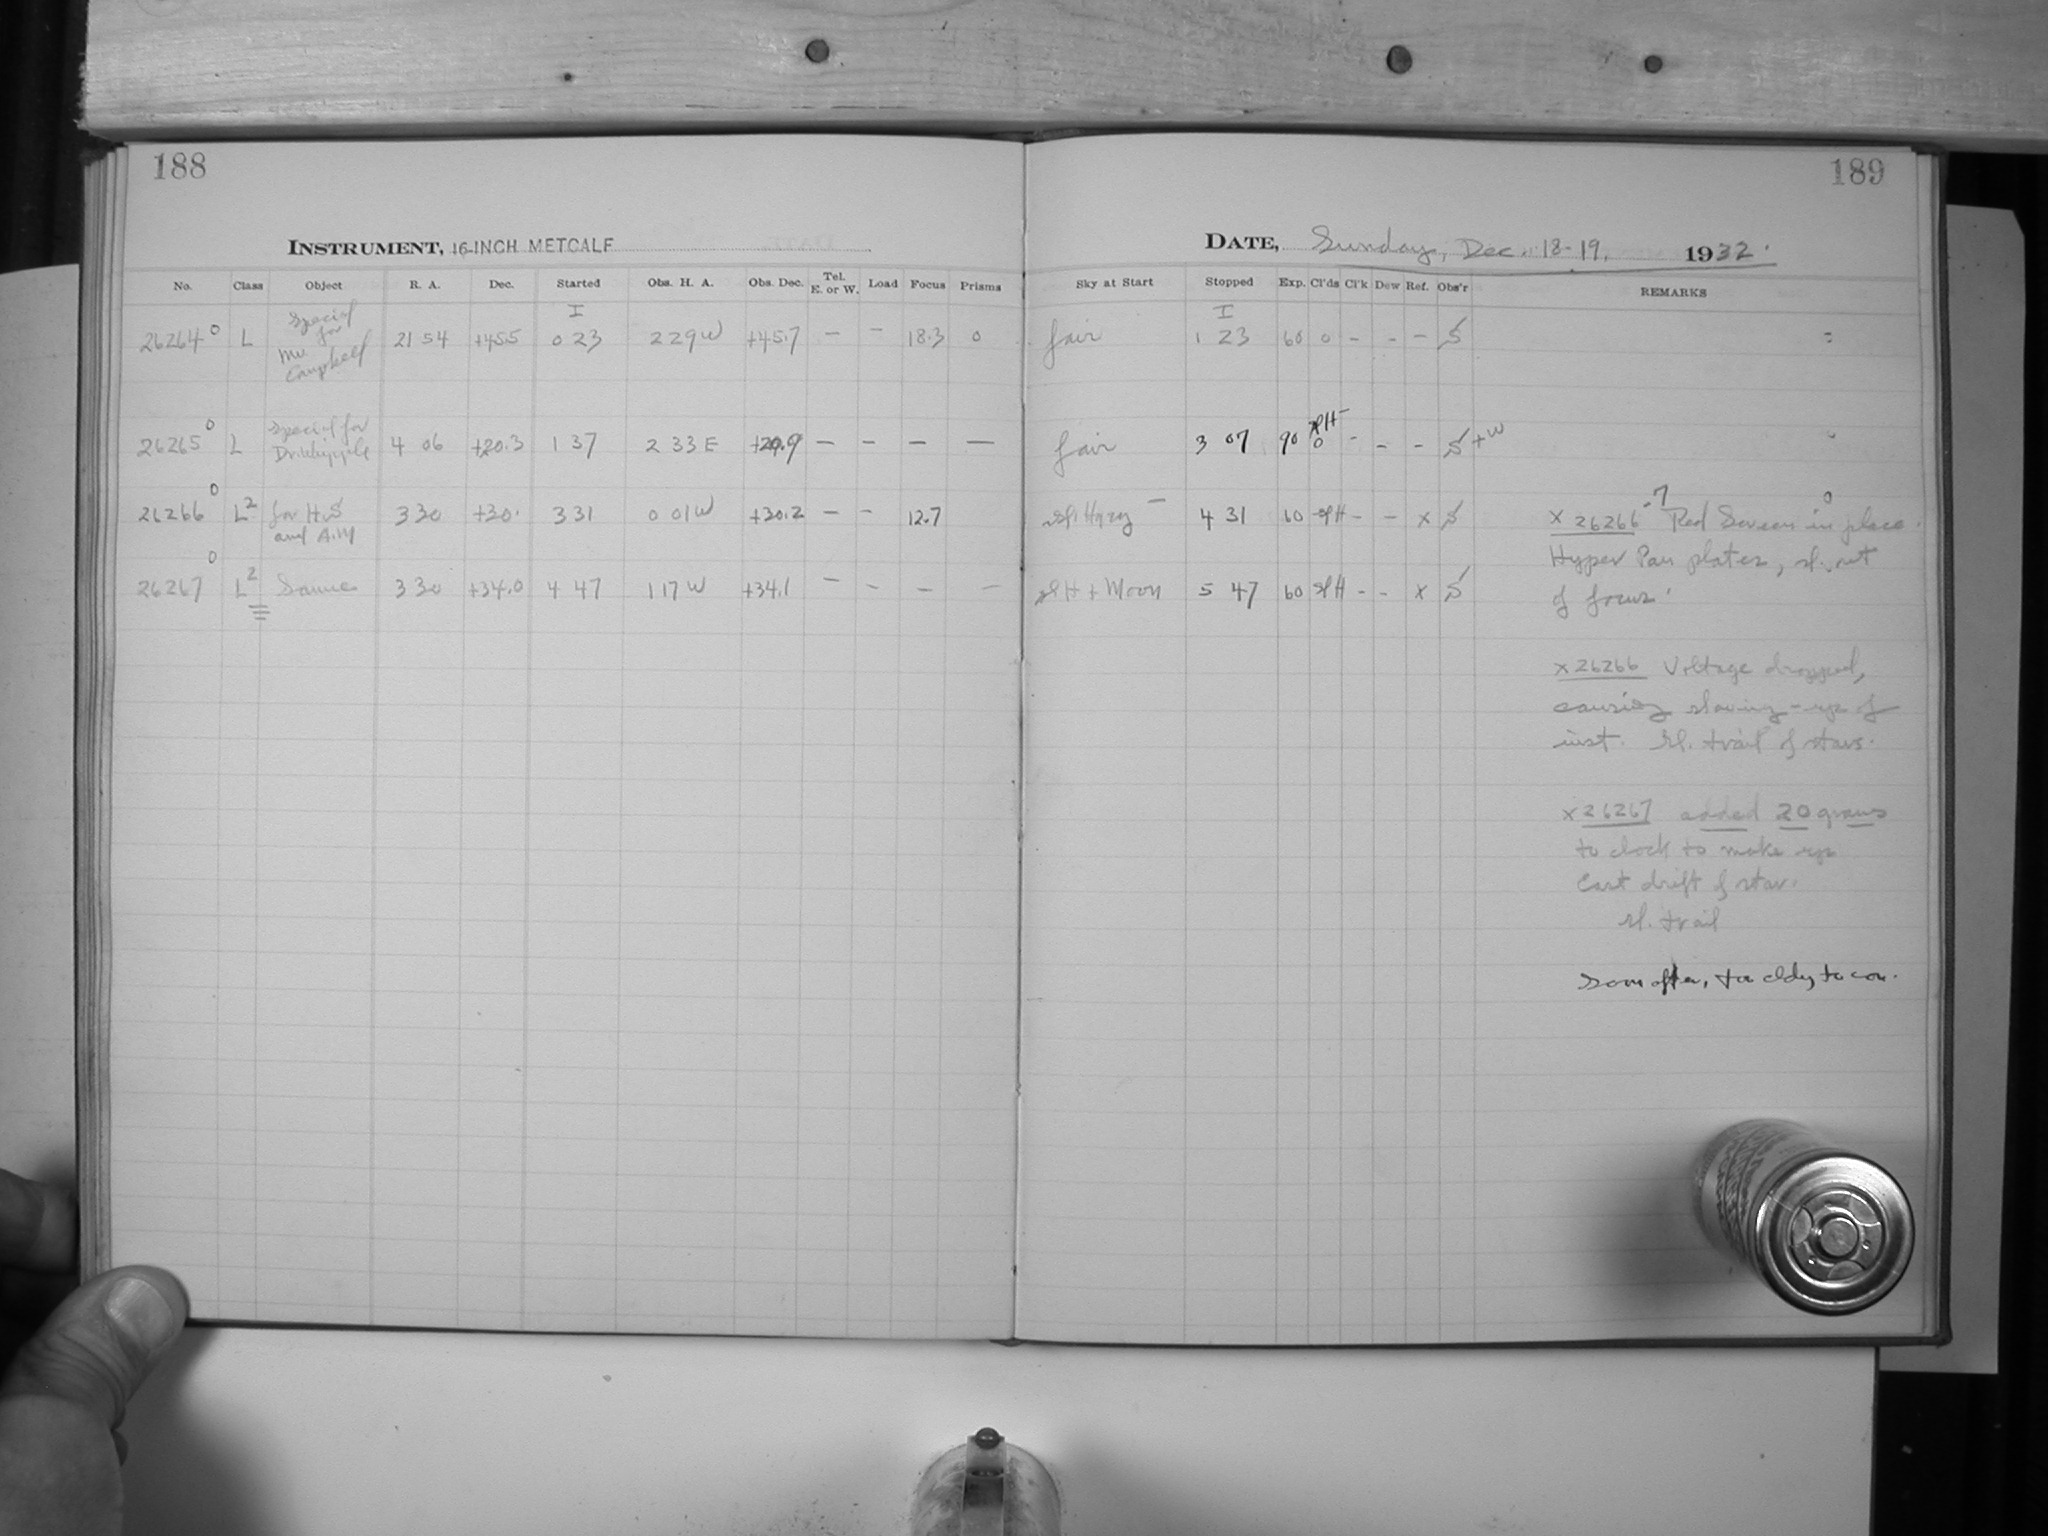 188
INSTRUMENT, 16-INCH METCALF
No. Class Object R. A. Dec. Started Obs. H. A. Obs. Dec. Tel. E. or W. Load Focus Prisms
I
26264 0 L Special for Mr. Campbell 21 54 +45.5 0 23 2 29 W +45.7 — — 18.3 0
26265 0 L Special for Dr. Whipple 4 06 +20.3 1 37 2 33 E +20.9 — — — —
26266 0 L2 for H.S and A.M 3 30 +30. 3 31 0 01 W +30.2 — — 12.7
26267 0 L2 Same 3 30 +34.0 4 47 1 17 W +34.1 — — — —
189
DATE, Sunday, Dec. 18-19. 1932.
Sky at Start Stopped Exp. Cl'ds Cl'k Dew Ref. Obs'r REMARKS
I
fair 1 23 60 0 - - - S
fair 3 07 90 slH- 0 - - - S + W
sl. Hazy - 4 31 60 slH - - x S
slH + Moon 5 47 60 slH - - x S
x 26266-7 Red Screen in place.
Hyper Pan plates, sl. out
of focus.
x 26266 Voltage dropped,
causing slowing-up of
inst. sl. trail of stars.
x 26267 added 20 grams
to clock to make up
East drift of star.
sl. trail
Soon after, too cldy to con.